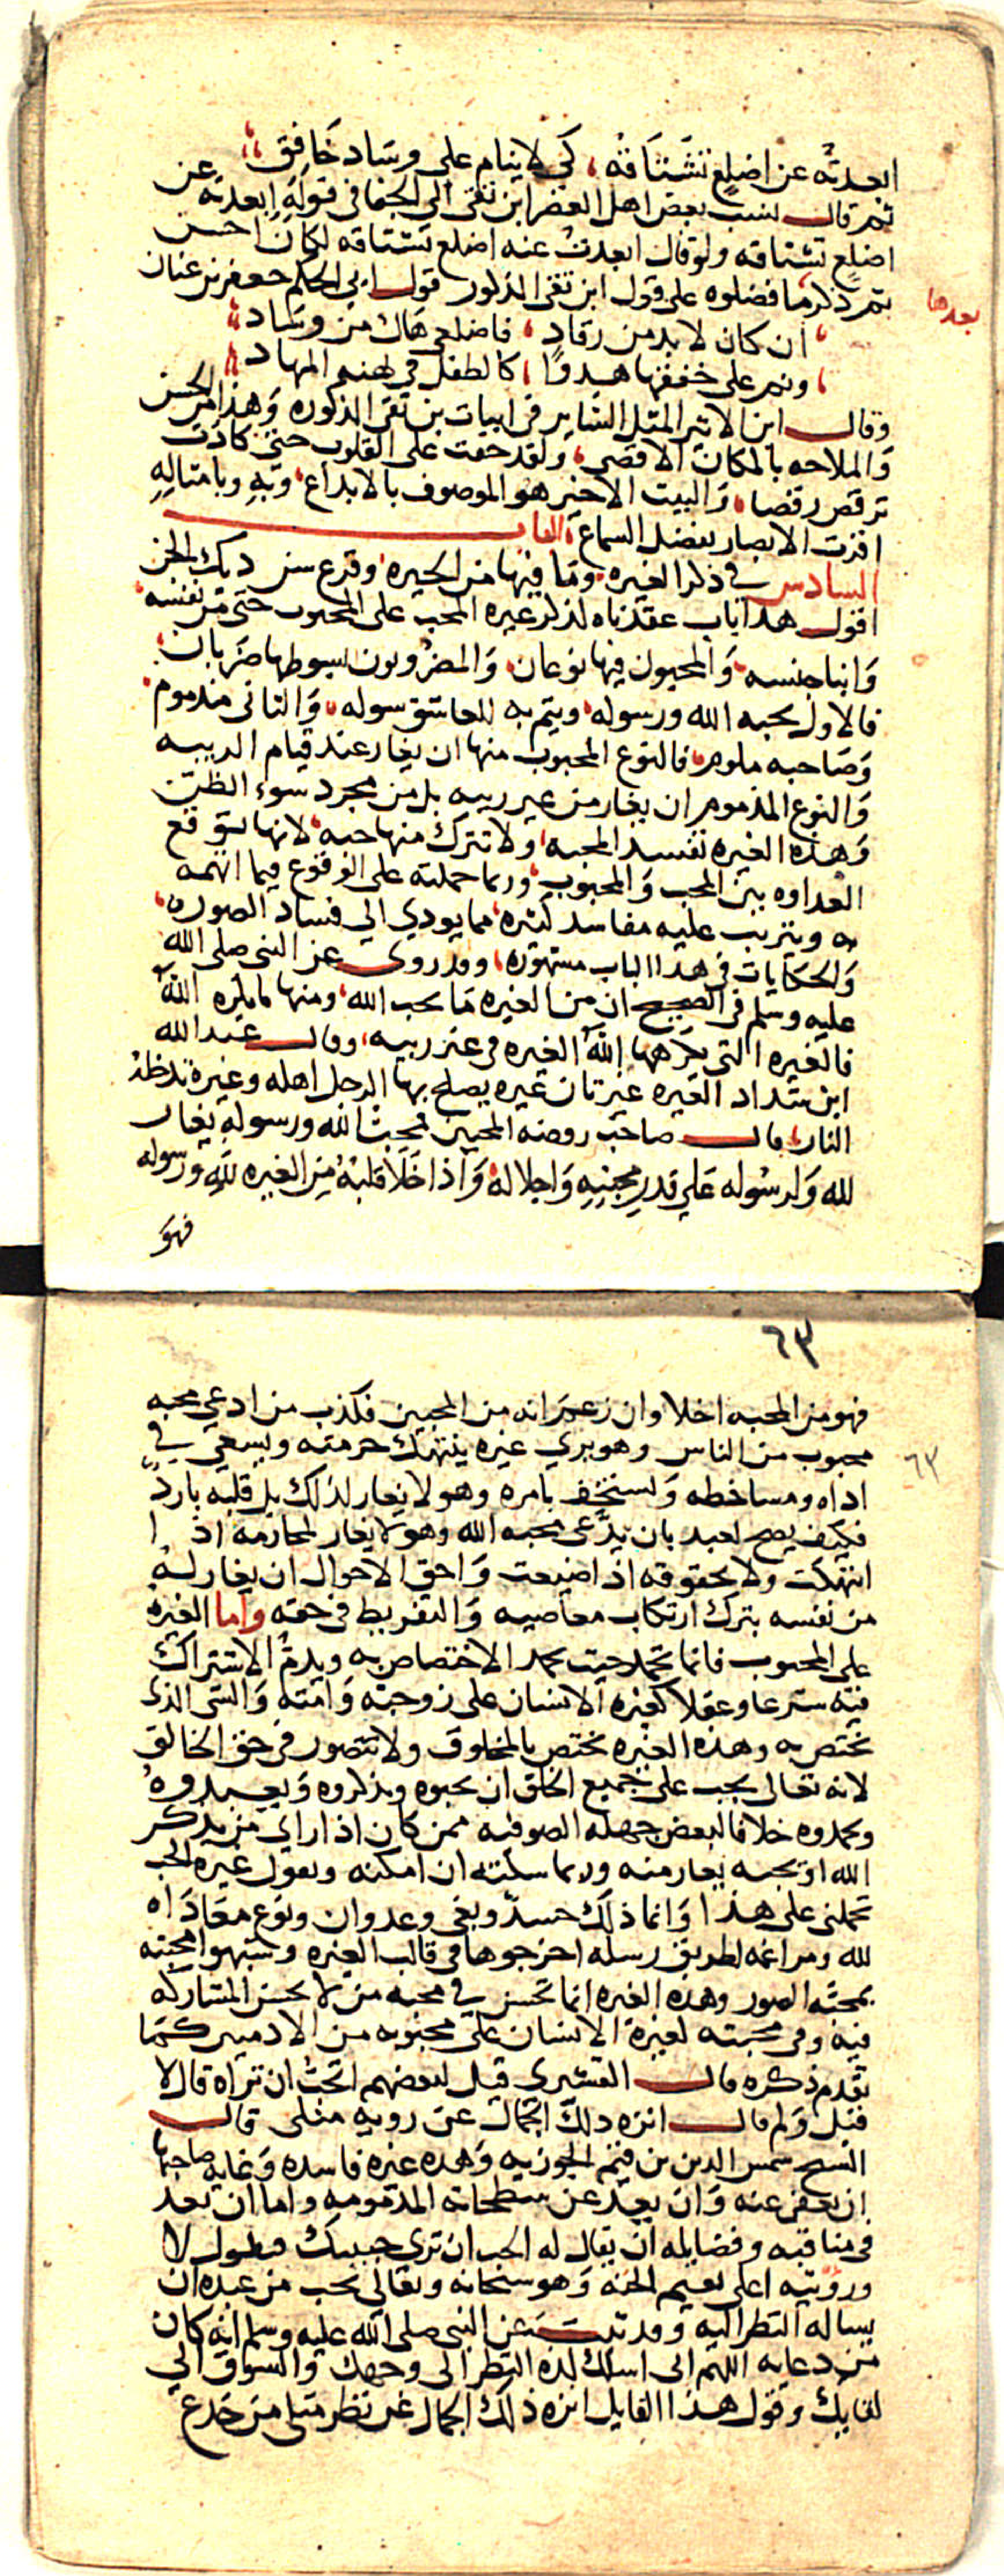 ابعدته عن اضلع تشتاقه، كي لا ينام على وساد خافق
ثم قال نسب بعض اهل العصر ابن تقى الى الجفا في قوله ابعدته عن
اضلع تشتاقه ولو قال ابعدت عنه اضلع تشتاقه لكان احسن
ثم ذكر ما فضلوه على قول ابن تقى المذكور قول ابى الحكم جعفر بن عنان
بعدها
ان كان لا بد من رقاد، فاضلعي هاك من وساد
ونم على خفقها هدوا، كالطفل في نهنه المهاد
وقال ابن الاثير المثل الساير في ابيات بن تقى المذكوره وهذا من الحسن
والملاحه بالمكان الاقصى، ولقد خفت على القلوب حتى كادت
ترقص رقصا، والبيت الاخير هو الموصوف بالابداع، وبه وبامثاله
اقرت الابصار بفضل السماع، الباب
السادس في ذكر الغيره، وما فيها من الحيره، وقرع سن ديك الجن
اقول هذا باب عقدناه لذكر غيره المحب على المحبوب حتى من نفسه،
وابنا جنسه، والمحبون فيها نوعان، والمضروبون بسوطها ضربان،
فالاول يحبه الله ورسوله، ويتم به للعاشق سوله، والثاني مذموم
وصاحبه ملوم، فالنوع المحبوب منها ان يغار عند قيام الريبه
والنوع المذموم ان يغار من غير ريبه بل من مجرد سوء الظن
وهذه الغيره تفسد المحبه، ولا تترك منها حبه، لانها توقع
العداوه بين المحب والمحبوب، وربما حملته على الوقوع فيما اتهمه
به ويترتب عليه مفاسد كثيره، مما يودي الي فساد الصوره،
والحكايات في هذا الباب مشهوره، وقد روى عن النبى صلى الله
عليه وسلم في الصحيح ان من الغيره ما يحب الله، ومنها ما يكره الله
فالغيره التي يكرهها الله الغيره في غير ريبه، وقال عبد الله
ابن شداد الغيره غيرتان غيره يصلح بها الرجل اهله وغيرة تدخله
النار، قال صاحب روضه المحبين محب الله ورسوله يغار
لله ولرسوله على قدر محبته واجلاله واذا خلا قلبه من الغيره لله ورسوله
فهو
٦٣
فهو من المحبه اخلا وان زعم انه من المحبين فكذب من ادعى محبه
محبوب من الناس وهو يرى غيره ينتهك حرمته ويسعى في
٦٣
اذاه ومساخطه ويستخف بامره وهو لا يغار لذلك بل قلبه بارد
فكيف يصح لعبد بان يدعى محبه الله وهو لا يغار لمحارمه اذا
انتهكت ولا بحقوقه اذا ضيعت واحق الاحوال ان يغار له
من نفسه بترك ارتكاب معاصيه والتفريط في حقه واما الغيره
على المحبوب فانما تحمد حيث يحمد الاختصاص به ويذم الاشتراك
فيه شرعا وعقلا كغيره الانسان على زوجته وامته والشى الذى
يختص به وهذه الغيره تختص بالمخلوق ولا تتصور في حق الخالق
لانه تعالى يجب على جميع الخلق ان يحبوه ويذكروه ويعبدوه
ويحمدوه خلافا لبعض جهله الصوفيه ممن كان اذا راى من يذكر
الله او يحبه يغار منه وربما سكته ان امكنه ويقول غيره الحب
تحملني على هذا وانما ذلك حسد وبغى وعدوان ونوع معاداه
لله ومراغمه لطريق رسله اخرجوها في قالب الغيره وشبهوا محبته
بمحبه الصور وهذه الغيره انما تحسن في محبه من لا يحسن المشاركه
فيه وفي محبته كغيرة الانسان على محبوبه من الادميين كما
تقدم ذكره قال القشيرى قيل لبعضهم اتحب ان تراه قال لا
فقيل ولم قال انزه ذلك الجمال عن رويه مثلي قال
الشيخ شمس الدين بن قيم الجوزيه وهذه غيره فاسده وغايه صاحبها
ان يعفى عنه وان يعد عن شطحاته المذمومه واما ان يعد
في مناقبه وفضايله ان يقال له اتحب ان ترى حبيبك فيقول لا
ورؤيته اعلى نعيم الجنه وهو سبحانه وتعالى يحب من عبده ان
يساله النظر اليه وقد ثبت عن النبى صلى الله عليه وسلم انه كان
من دعايه اللهم انى اسالك لذه النظر الى وجهك والشوق الى
لقايك وقول هذا القايل انزه ذلك الجمال عن نظر مثلي من خدع